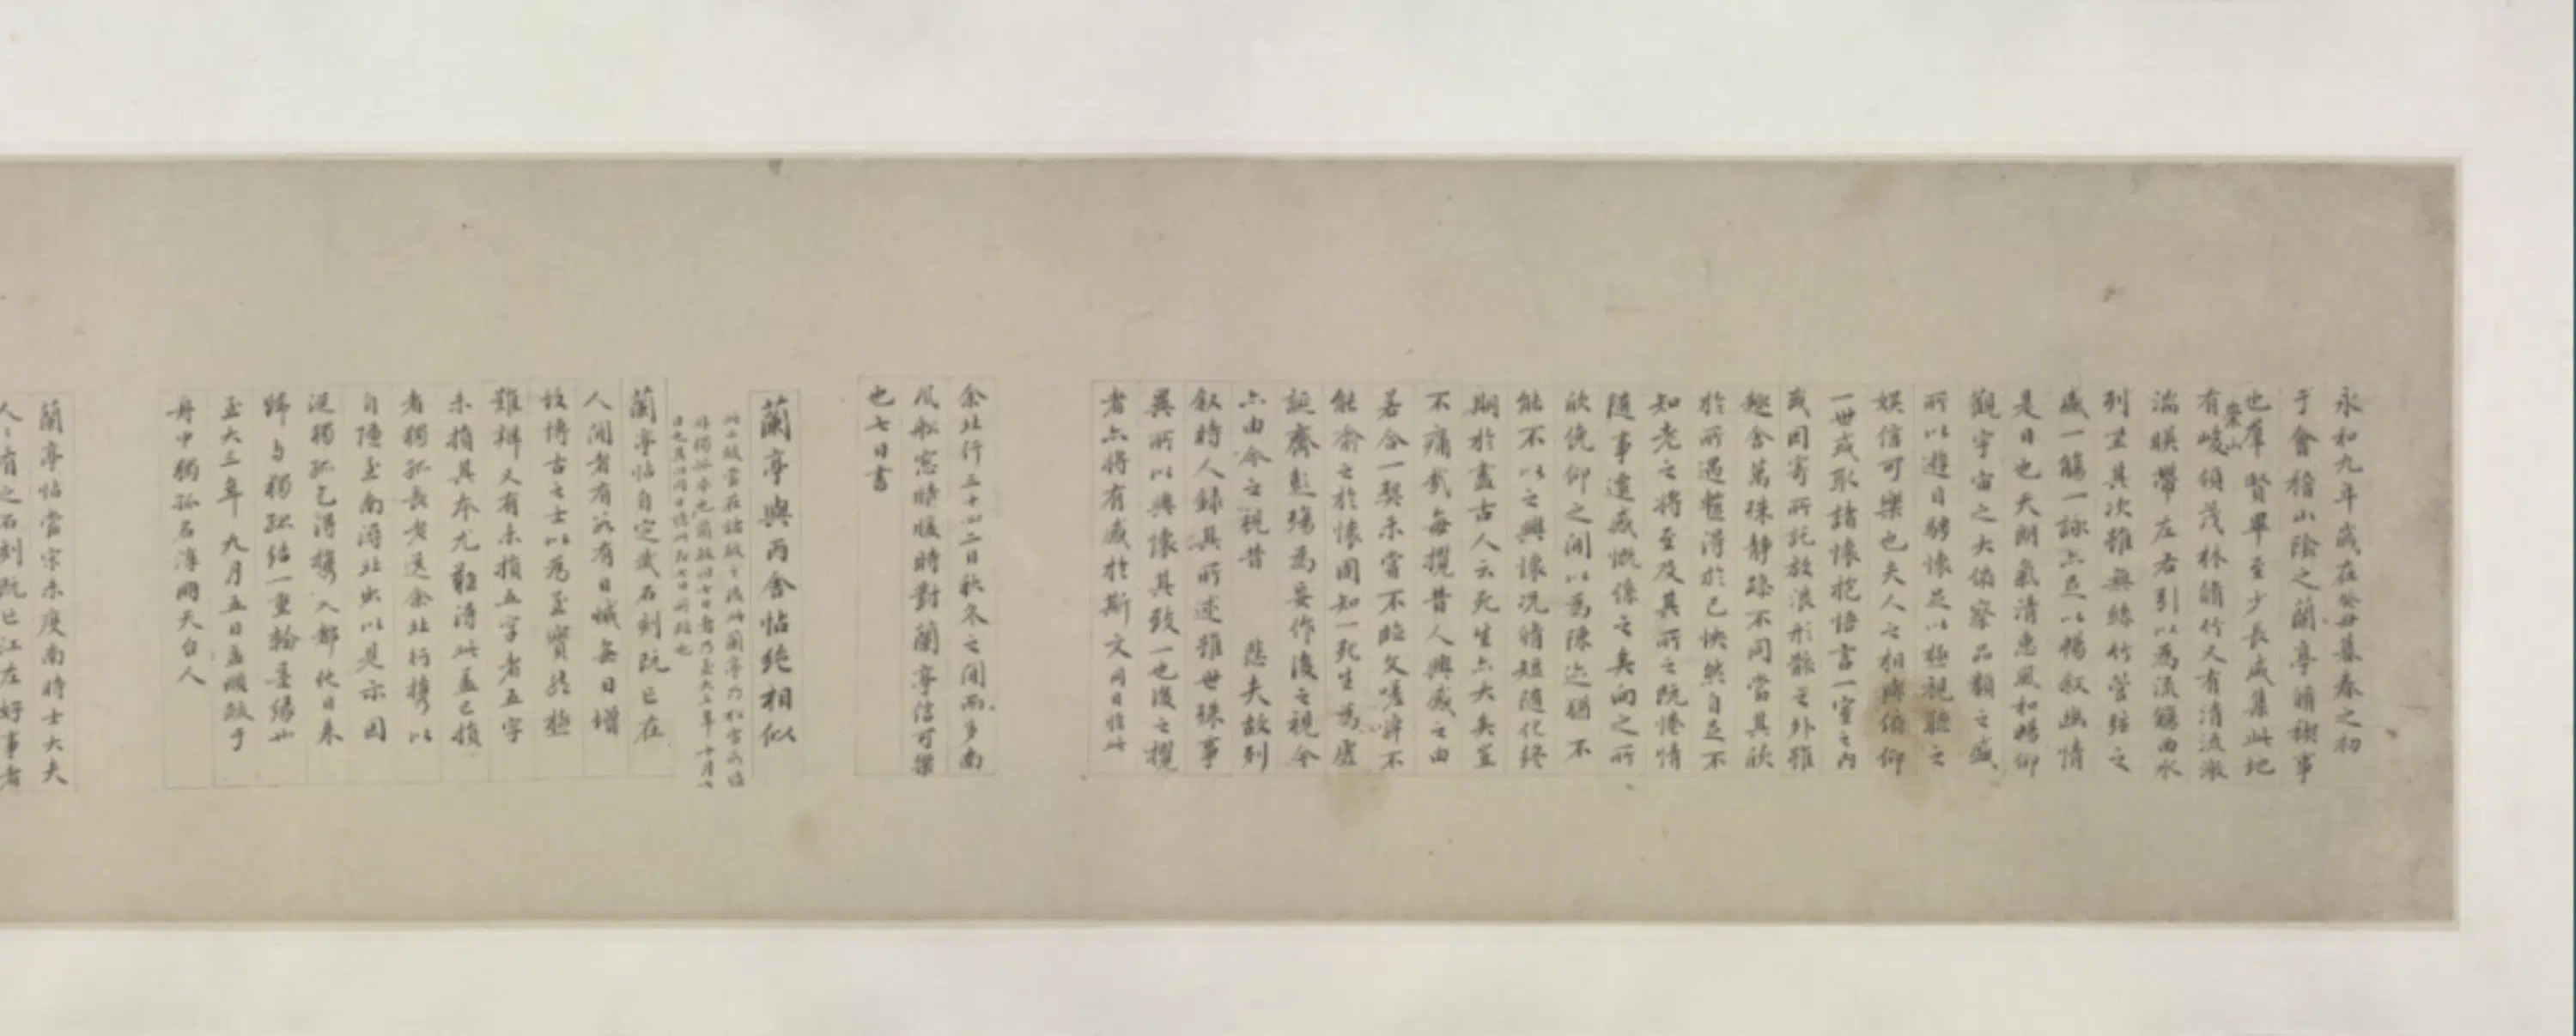 永和九年歲在癸丑暮春之初
于會稽山陰之蘭亭脩稧事
也羣賢畢至少長咸集此地
有崇山峻領茂林脩竹又有清流激
湍暎帶左右引以為流觴曲水
列坐其次雖無絲竹管弦之
盛一觴一詠亦足以暢叙幽情
是日也天朗氣清惠風和暢仰
觀宇宙之大俯察品類之盛
所以遊目騁懷足以極視聽之
娛信可樂也夫人之相與俯仰
一世或取諸懷抱悟言一室之內
或因寄所託放浪形骸之外雖
趣舍萬殊靜躁不同當其欣
於所遇蹔得於己怏然自足不
知老之將至及其所之既惓情
隨事遷感慨係之矣向之所
欣俛仰之間以為陳迹猶不
能不以之興懷況脩短隨化終
期於盡古人云死生亦大矣豈
不痛哉每攬昔人興感之由
若合一契未嘗不臨文嗟悼不
能喻之於懷固知一死生為虛
誕齊彭殤為妄作後之視今
亦由今之視昔 悲夫故列
叙時人錄其所述雖世殊事
異所以興懷其致一也後之攬
者亦將有感於斯文 同日臨此
余北行三十二日秋冬之間而多南
風船窓晴暖時對蘭亭信可樂
也七日書
蘭亭與丙舍帖絕相似
蘭亭帖自定武石刻既亡在
人間者有數有日減無日增
故博古之士以為至寶然極
難辨又有未損五字者五字
未損其本尤難得此蓋已損
者獨孤長老送余北行攜以
自隨至南潯北出以示因
從獨孤乞得攜入都他日來
歸與獨孤結一重翰墨緣也
至大三年九月五日孟頫跋于
舟中獨孤名淳朋天台人
蘭亭帖當宋未度南時士大夫
人人有之石刻既亡江左好事者